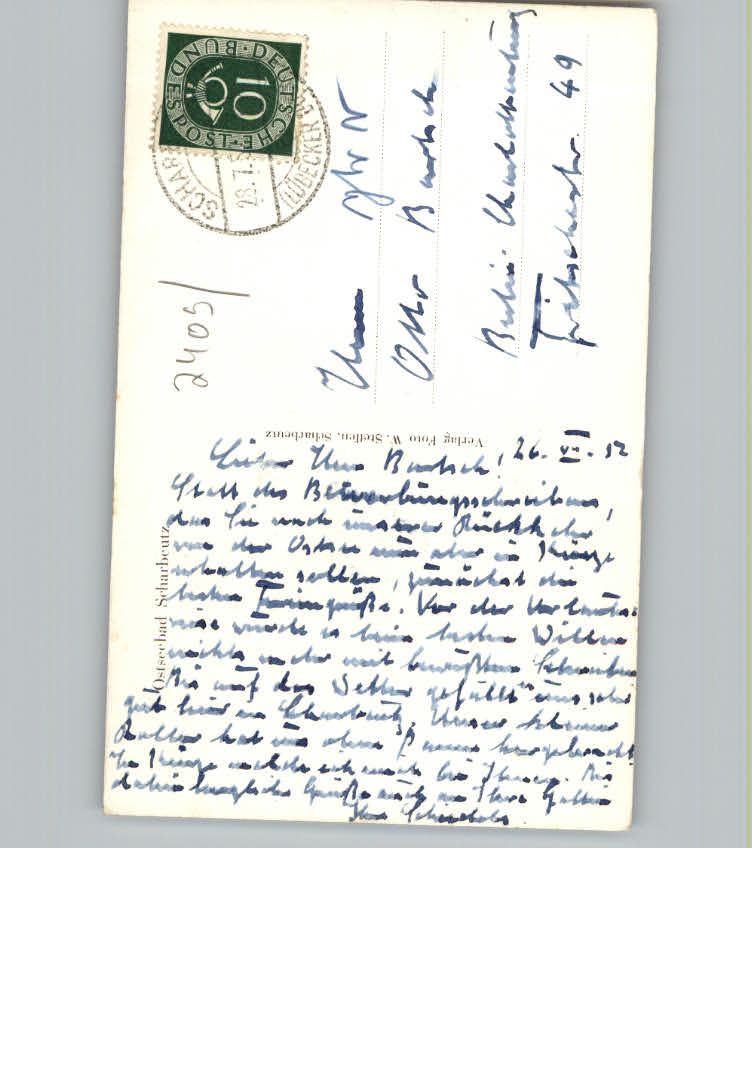 DEUTSCHE BUNDESPOST
10
SCHARB
28.7.5
(LÜBECKER B
2405/
Herrn
Otto Bartsch
Berlin-Charlottenburg
Fritschestr. 49
Verlag Foto W. Steffen, Scharbeutz
Ostseebad Scharbeutz
26. VII. 52
Lieber Herr Bartsch!
Statt des Bewerbungsschreibens,
das Sie nach unserer Rückkehr
von der Ostsee nun aber in Kürze
erhalten sollen, zunächst die
besten Feriengrüße. Vor der
wurde es beim besten Willen
nichts mehr mit
Bis auf das Wetter gefällt es uns sehr
gut hier in Scharbeutz. Unser kleiner
Roller hat uns ohne Panne hergebracht.
In Kürze melde ich mich bei Ihnen. Bis
dahin herzliche Grüße auch an Ihre Gattin
Ihr